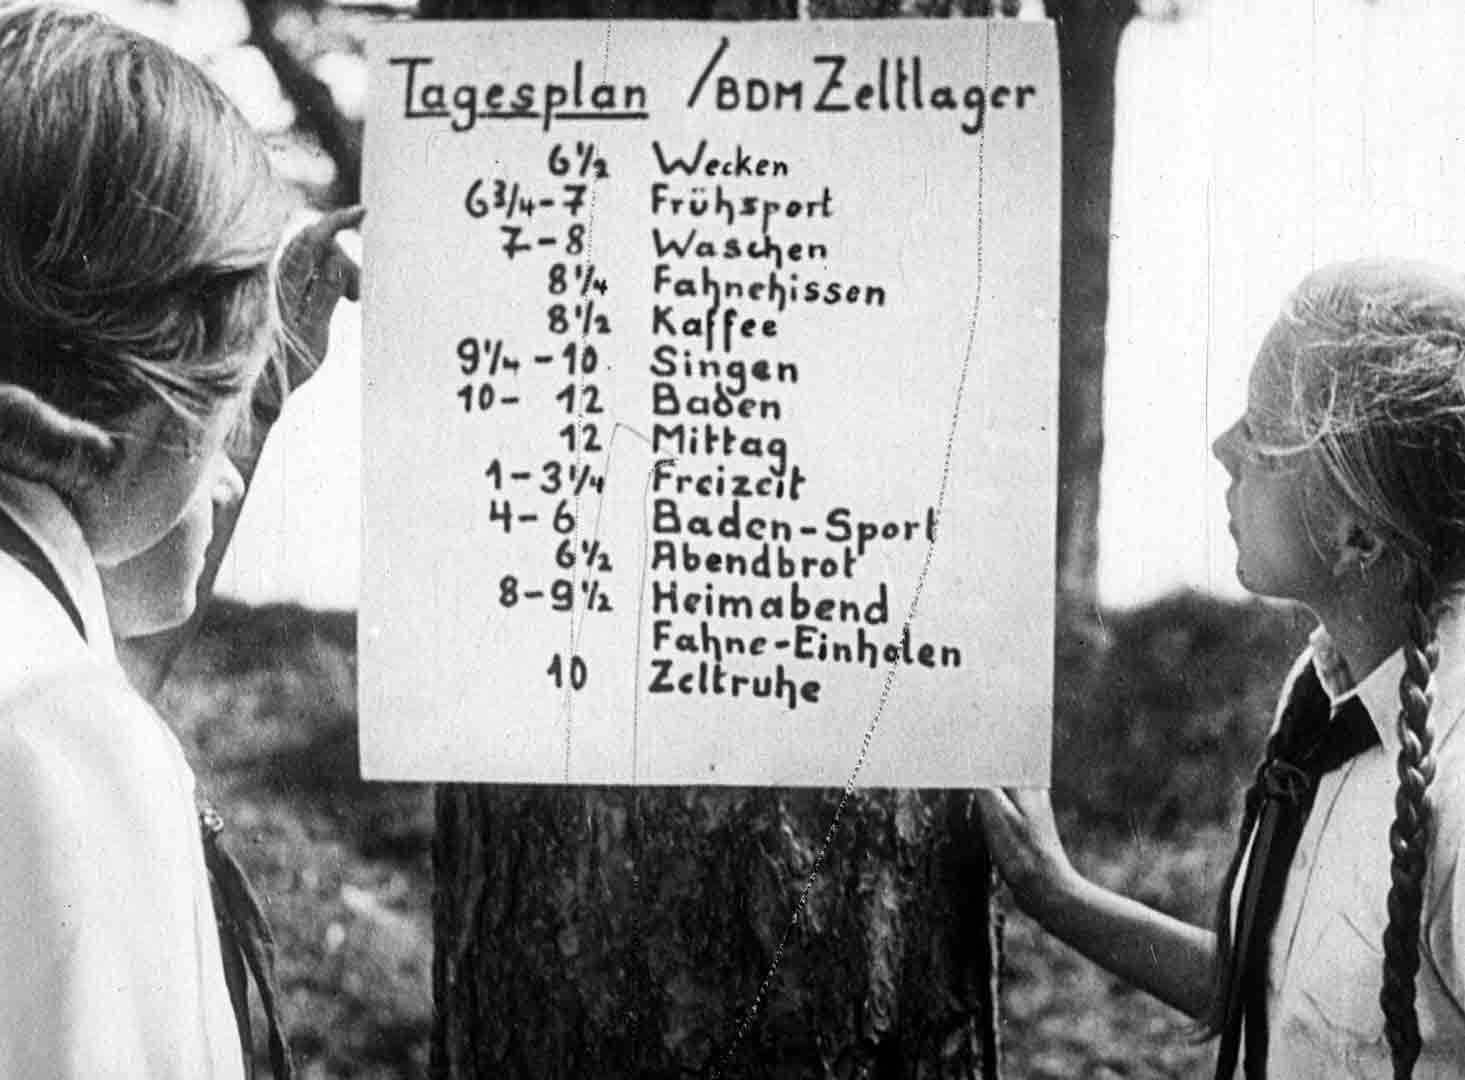 Tagesplan / BDM Zeltlager
6½ Wecken
6¾-7 Frühsport
7-8 Waschen
8¼ Fahnehissen
8½ Kaffee
9¼-10 Singen
10- 12 Baden
12 Mittag
1-3¼ Freizeit
4-6 Baden-Sport
6½ Abendbrot
8-9½ Heimabend
Fahne-Einholen
10 Zeltruhe